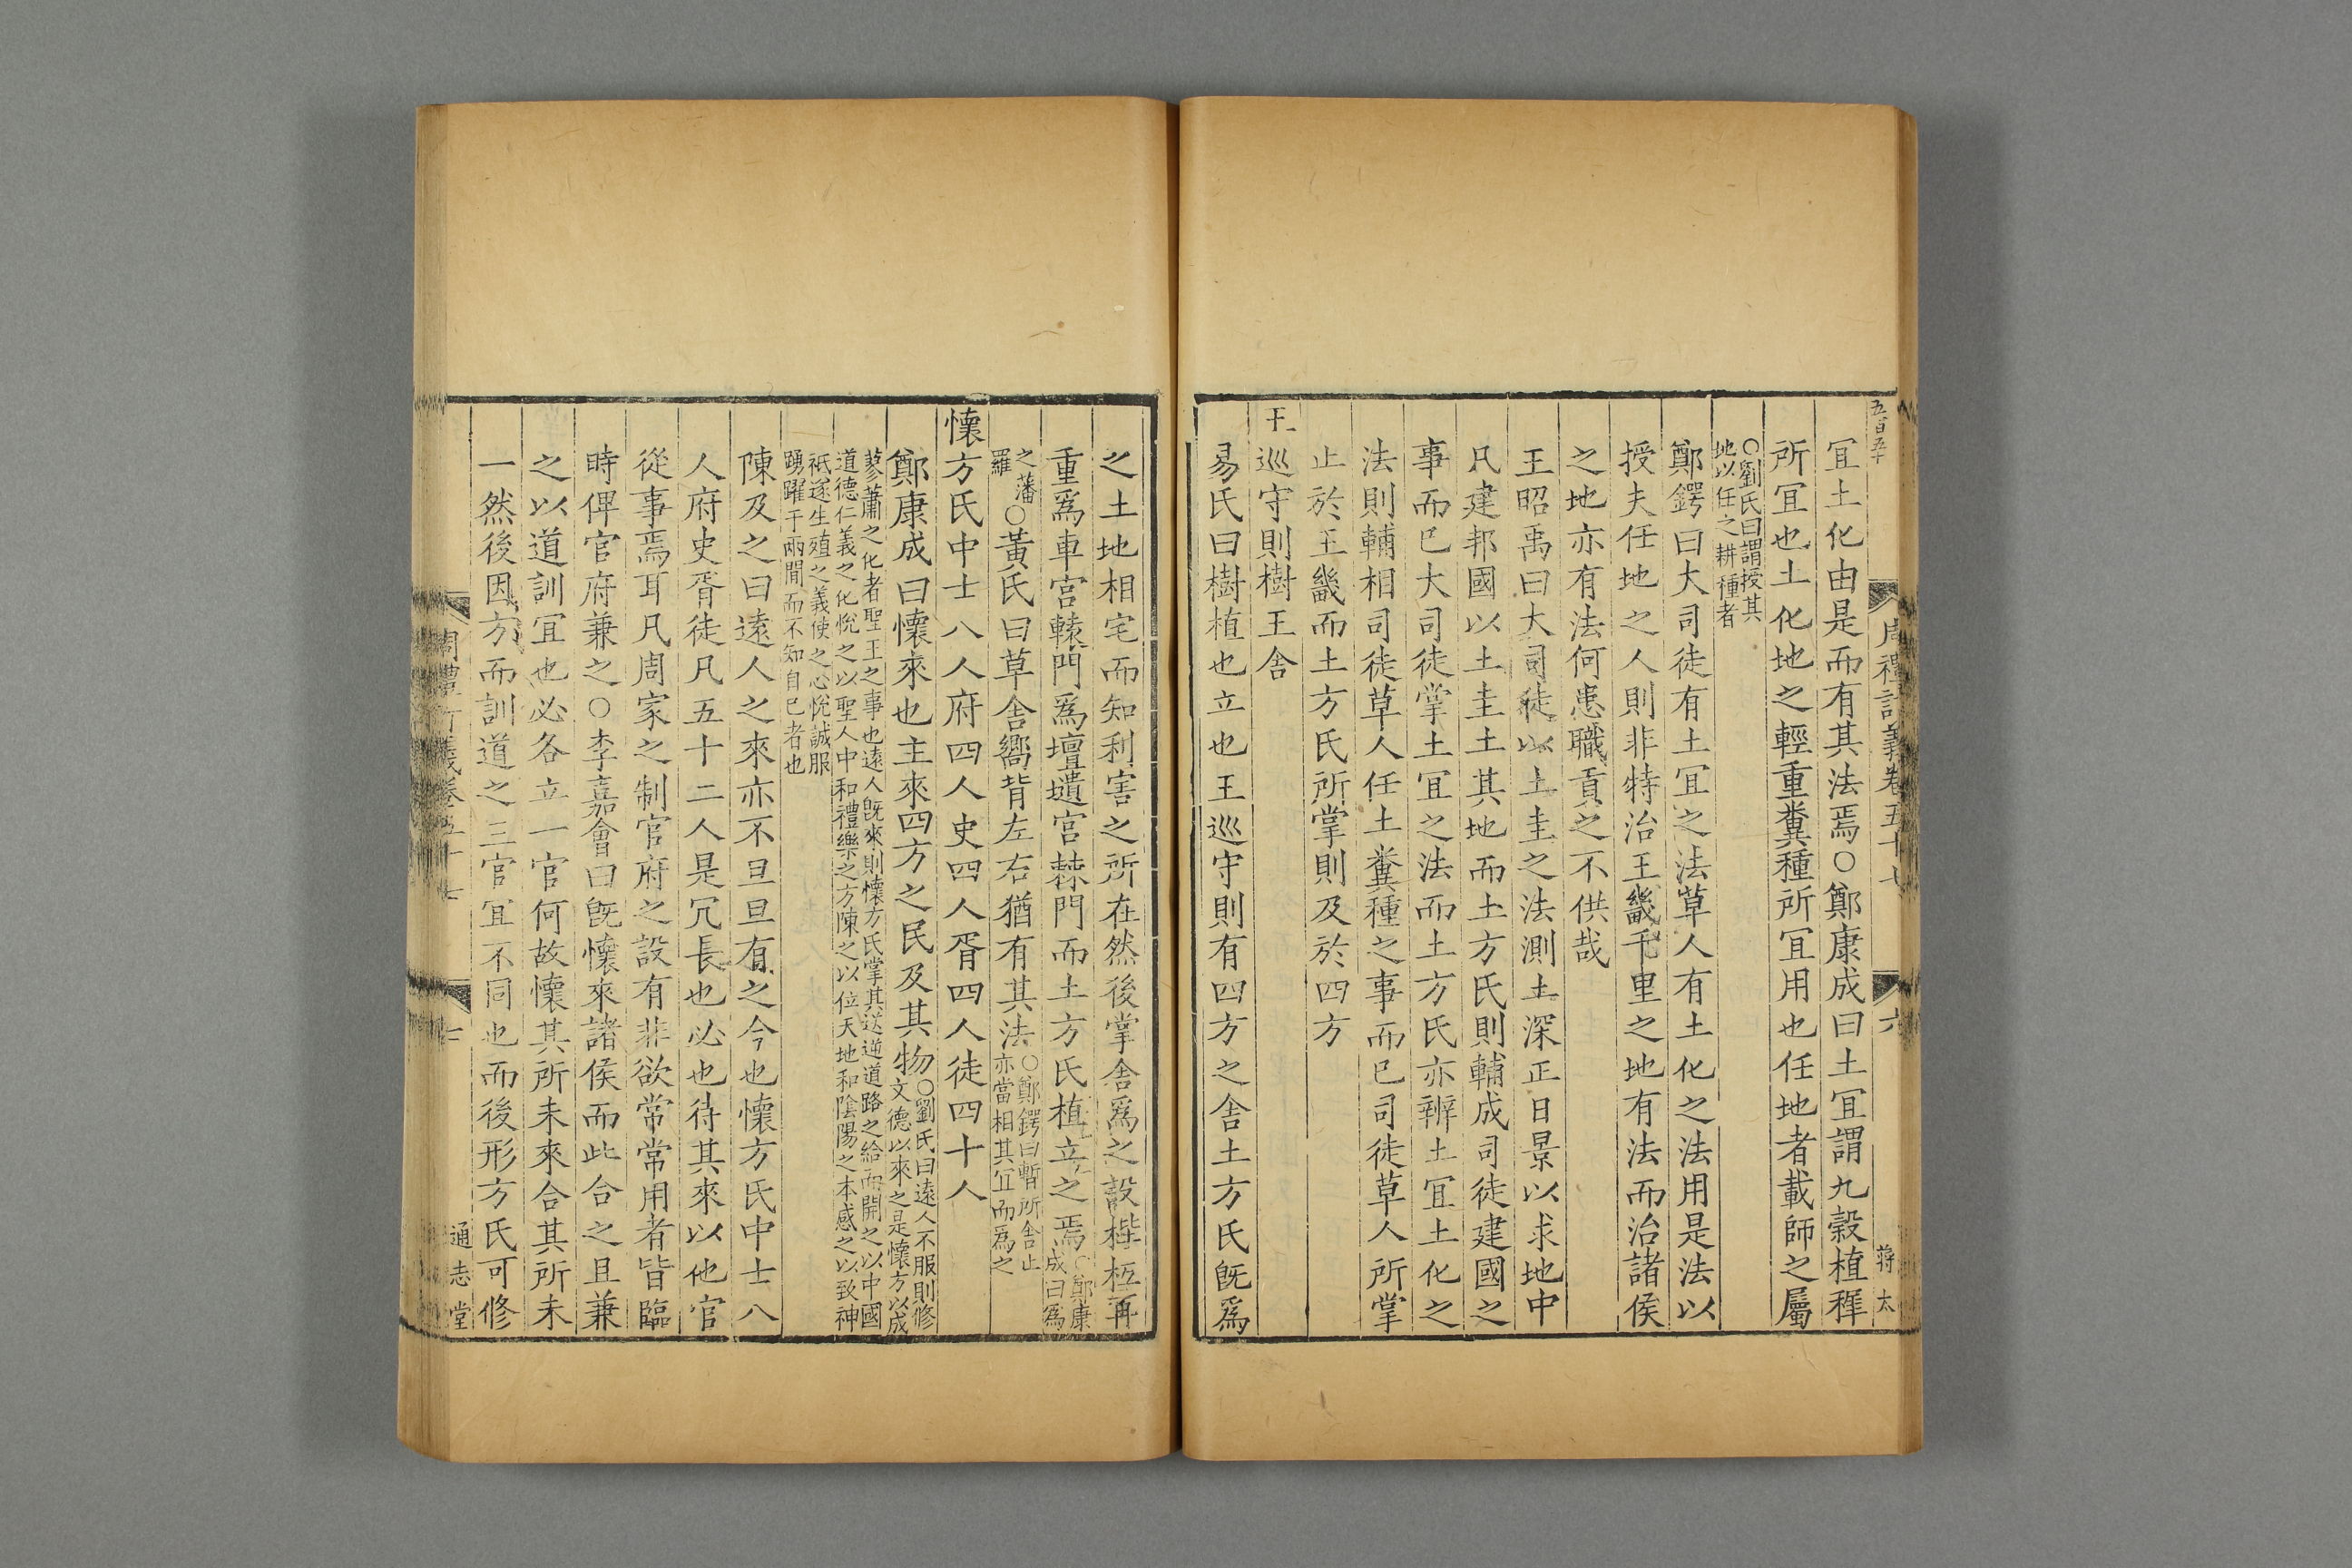 五百五十
周禮訂義卷五十七
六
蔣太
宜土化由是而有其法焉○鄭康成曰土宜謂九穀植穉
所宜也土化地之輕重糞種所宜用也任地者載師之屬
○劉氏曰謂授其
地以任之耕種者
鄭鍔曰大司徒有土宜之法草人有土化之法用是法以
授夫任地之人則非特治王畿千里之地有法而治諸侯
之地亦有法何患職貢之不供哉
王昭禹曰大司徒以土圭之法測土深正日景以求地中
凡建邦國以土圭土其地而土方氏則輔成司徒建國之
事而已大司徒掌土宜之法而土方氏亦辨土宜土化之
法則輔相司徒草人任土糞種之事而已司徒草人所掌
止於王畿而土方氏所掌則及於四方
王巡守則樹王舍
易氏曰樹植也立也王巡守則有四方之舍土方氏旣爲
之土地相宅而知利害之所在然後掌舍爲之設梐枑再
重爲車宮轅門爲壇壝宮棘門而土方氏植立之焉○鄭康
成曰爲
之藩
羅○黃氏曰草舍嚮背左右猶有其法○鄭鍔曰暫所舍止
亦當相其宜而爲之
懷方氏中士八人府四人史四人胥四人徒四十人
鄭康成曰懷來也主來四方之民及其物○劉氏曰遠人不服則修
文德以來之是懷方以成
蓼蕭之化者聖王之事也遠人旣來則懷方氏掌其送逆道路之給而開之以中國
道德仁義之化悅之以聖人中和禮樂之方陳之以位天地和陰陽之本感之以致神
祇遂生殖之義使之心悅誠服
踴躍于兩間而不知自已者也
陳及之曰遠人之來亦不旦旦有之今也懷方氏中士八
人府史胥徒凡五十二人是冗長也必也待其來以他官
從事焉耳凡周家之制官府之設有非欲常常用者皆臨
時俾官府兼之○李嘉會曰旣懷來諸侯而此合之且兼
之以道訓宜也必各立一官何故懷其所未來合其所未
一然後因方而訓道之三官宜不同也而後形方氏可修
周禮訂義卷五十七
七
通志堂